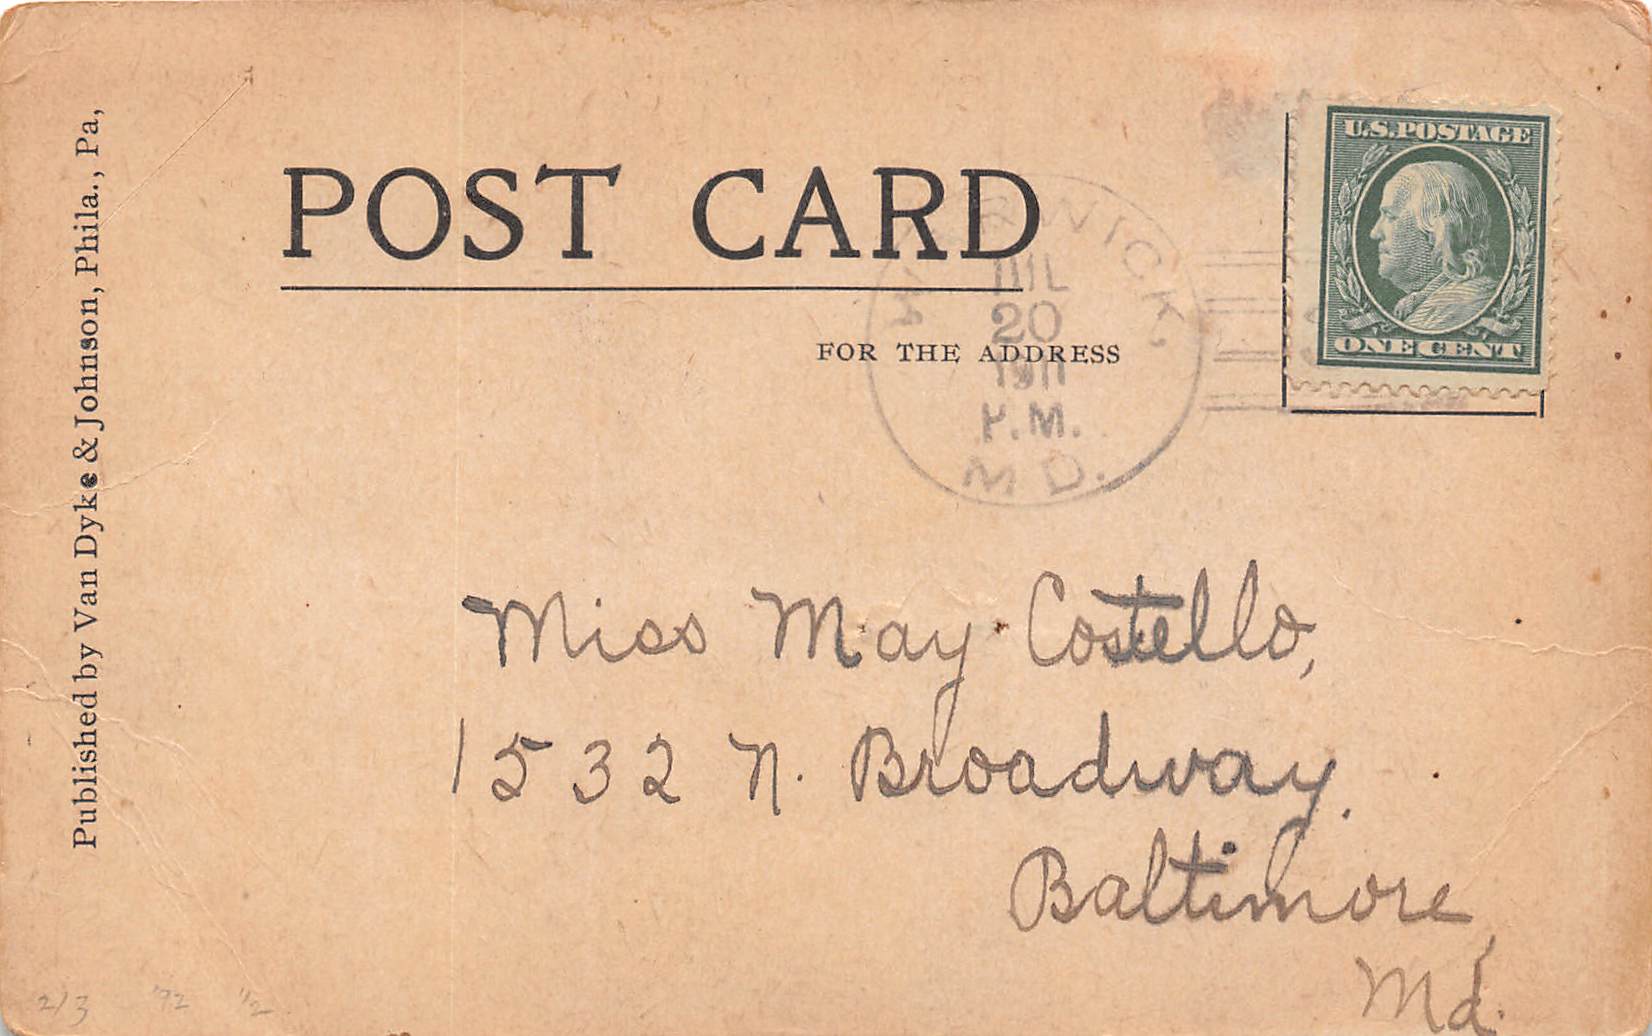 Published by Van Dyke & Johnson, Phila., Pa,
POST CARD
FOR THE ADDRESS
WARWICK,
JUL
20
1911
P.M.
MD.
U.S. POSTAGE
ONE CENT
Miss May Costello,
1532 N. Broadway.
Baltimore,
Md.
2/3 '72 1/2